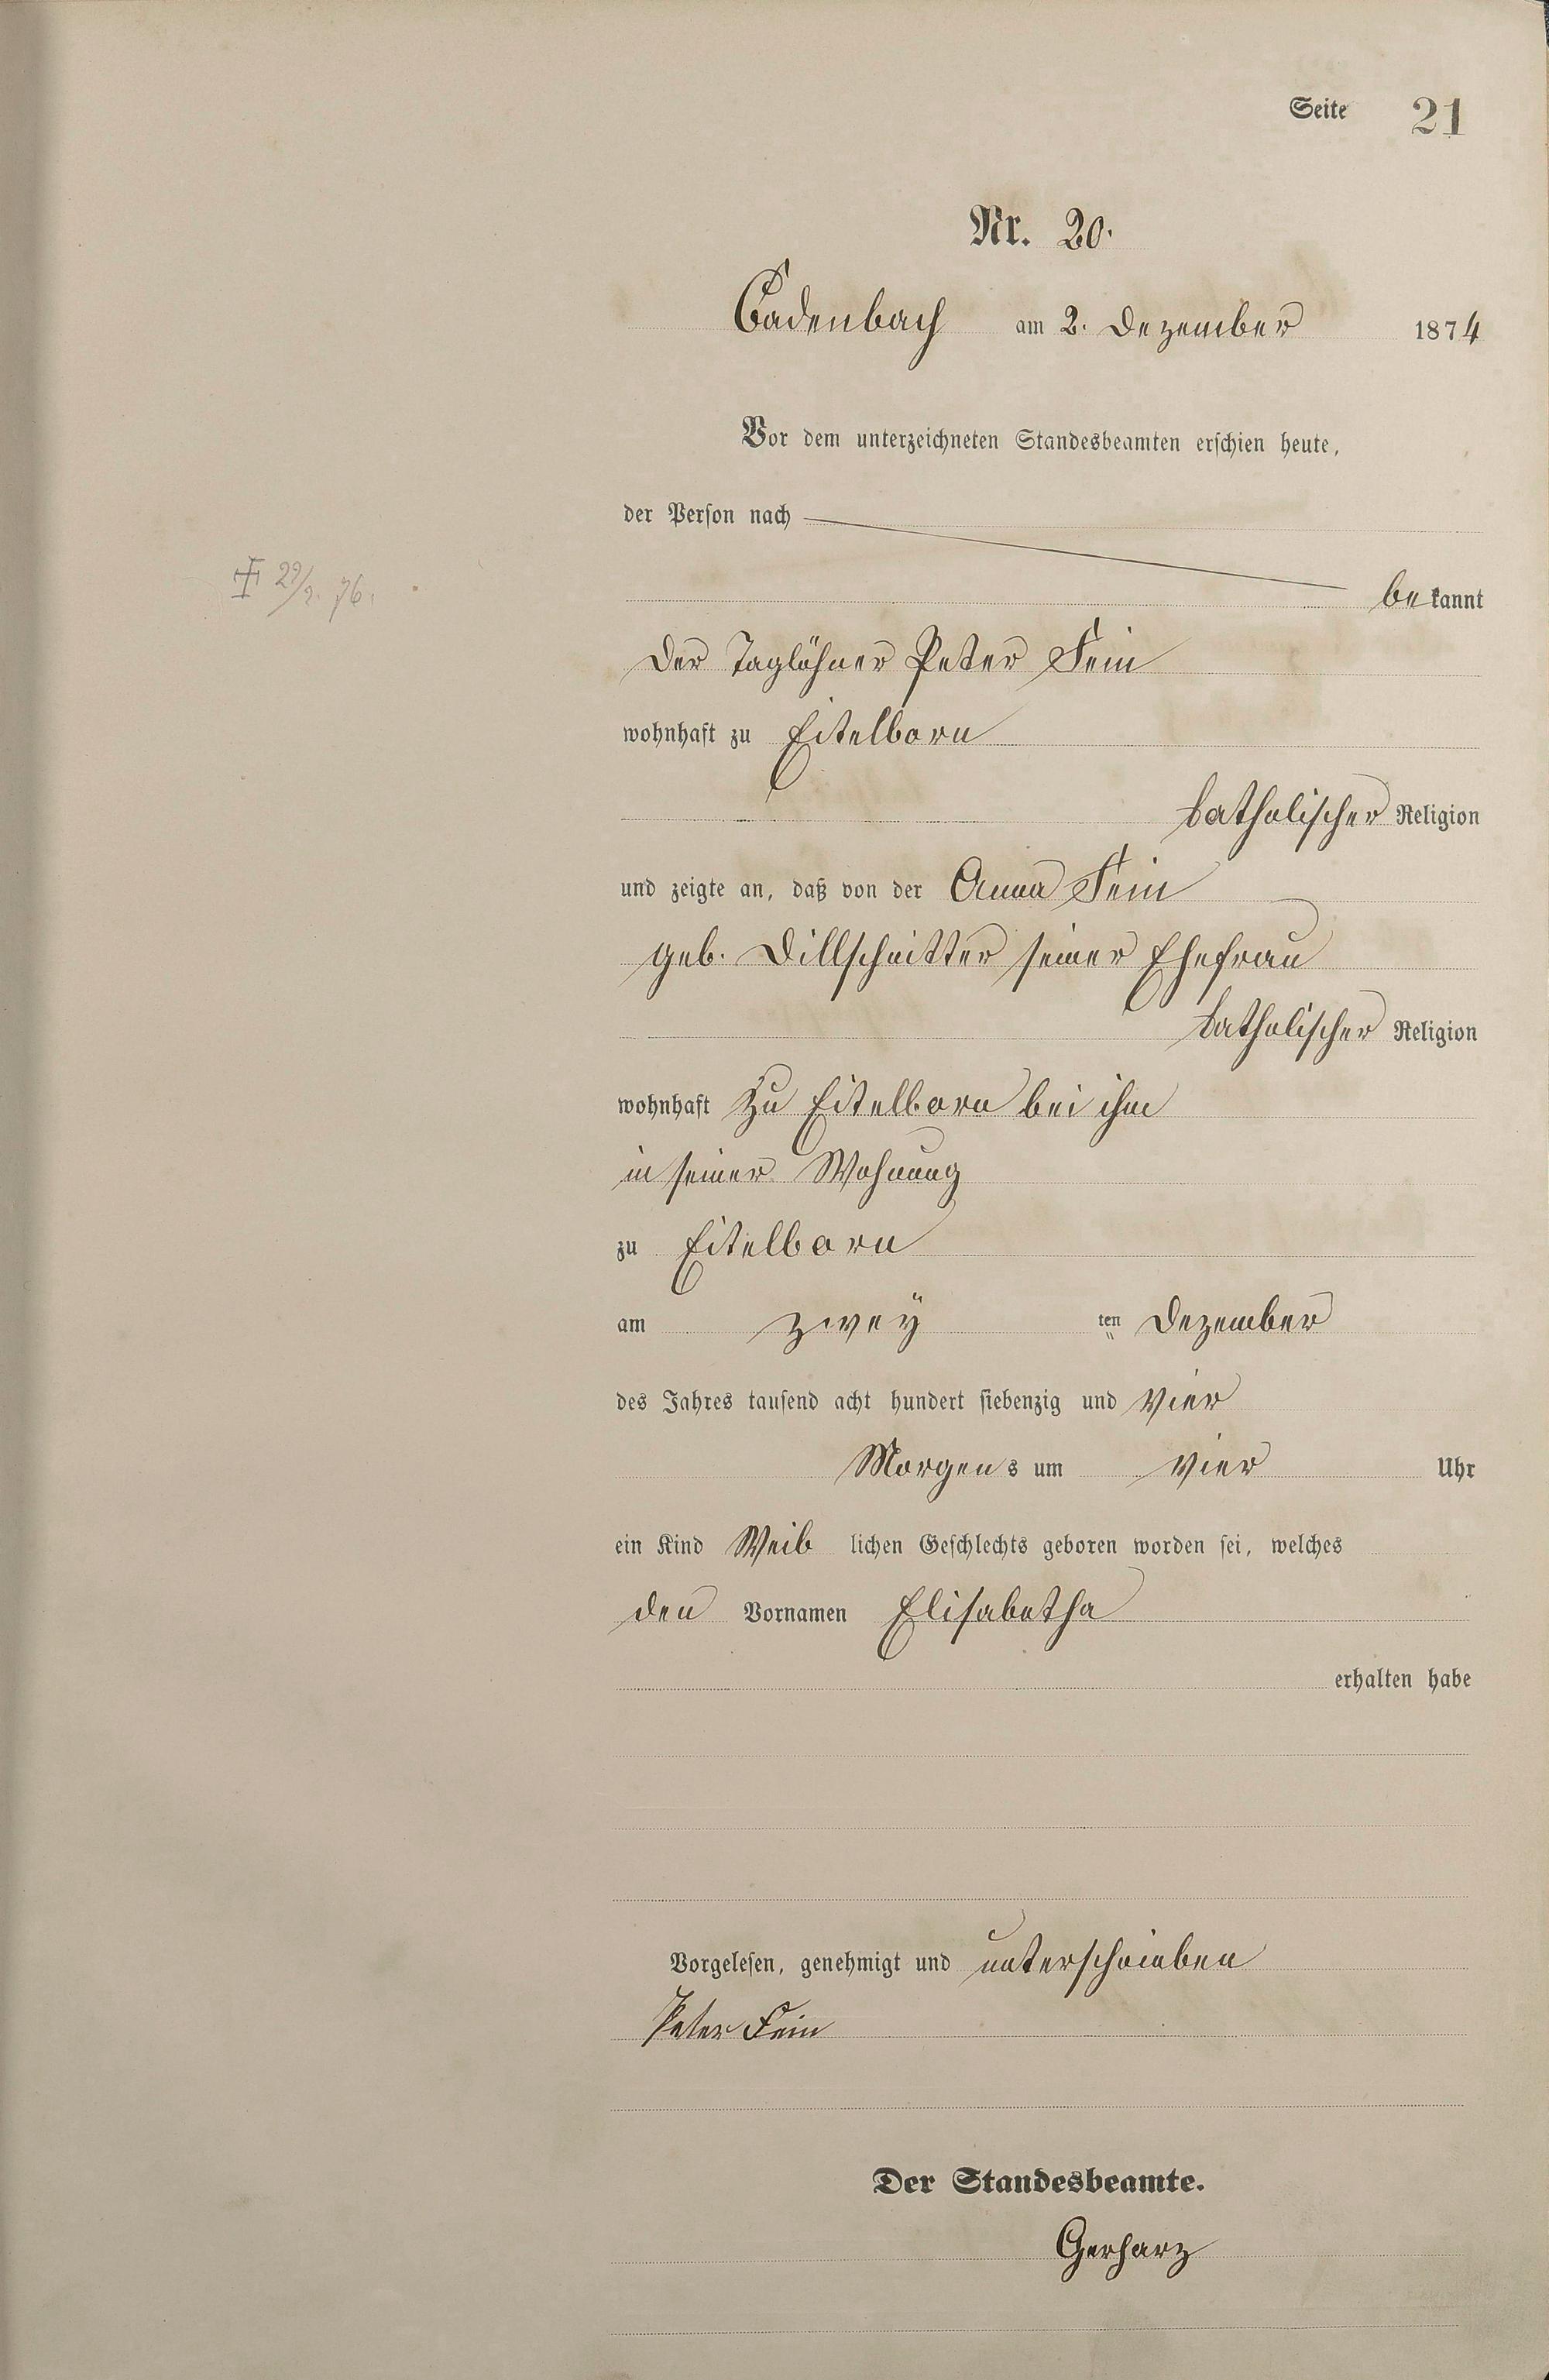 Seite 21
Nr. 20.
Cadenbach am 2. Dezember 1874
Vor dem unterzeichneten Standesbeamten erschien heute,
der Person nach
bekannt
✝ 29/2. 76.
der Taglöhner Peter Fein
wohnhaft zu Eitelborn
katholischer Religion
und zeigte an, daß von der Anna Fein
geb. Dillschnitter seiner Ehefrau
katholischer Religion
wohnhaft zu Eitelborn bei ihm
in seiner Wohnung
zu Eitelborn
am zwey ten Dezember
des Jahres tausend acht hundert siebenzig und vier
Morgens um vier Uhr
ein Kind Weiblichen Geschlechts geboren worden sei, welches
den Vornamen Elisabetha
erhalten habe
Vorgelesen, genehmigt und unterschrieben
Peter Fein
Der Standesbeamte.
Gerharz